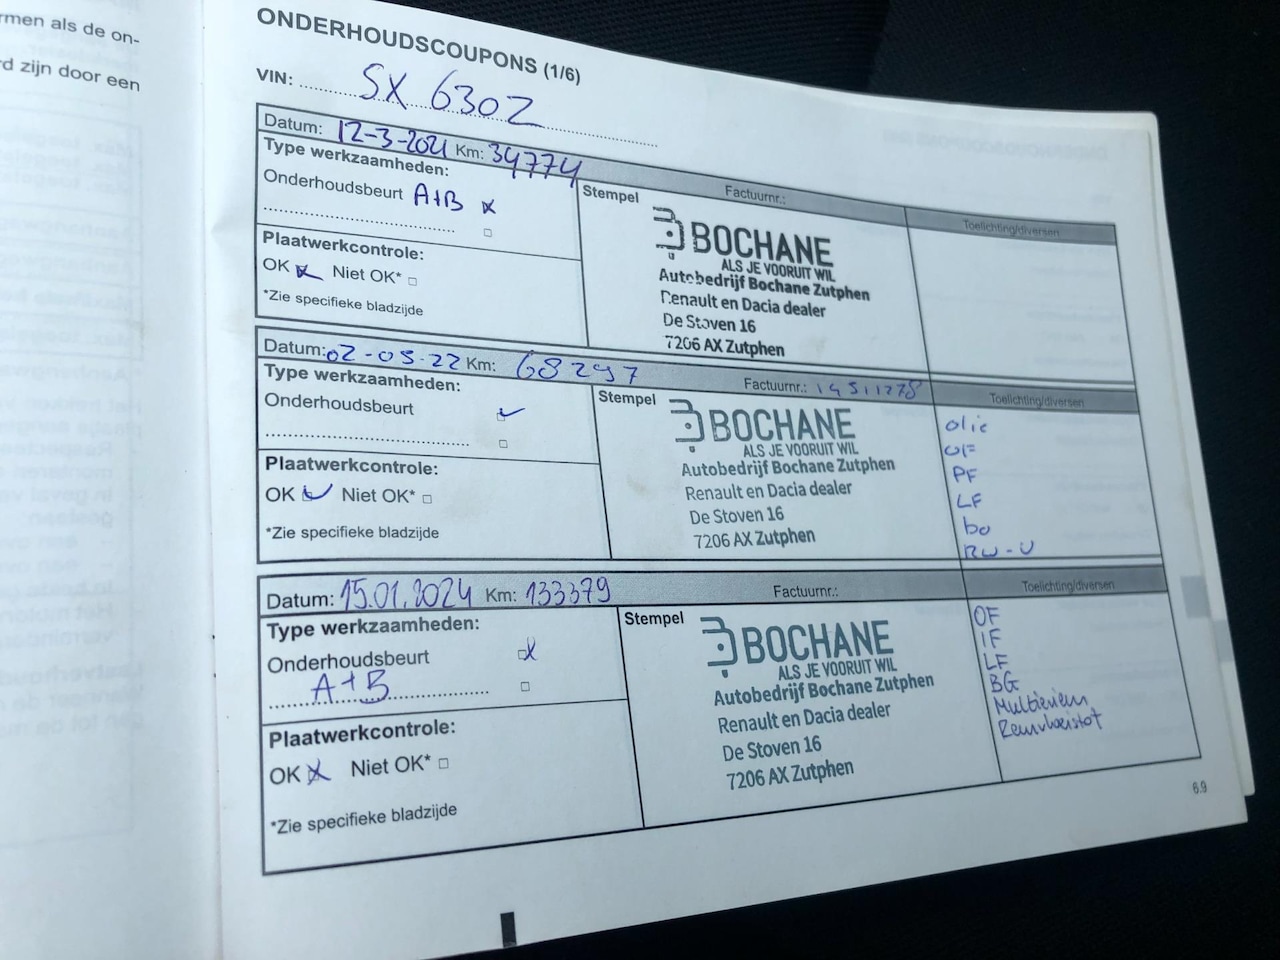 rmen als de on-
d zijn door een
ONDERHOUDSCOUPONS (1/6)
VIN: SX 630Z
Datum: 12-3-2021 Km: 34774 Factuurnr.: Toelichting/diversen
Type werkzaamheden:
Onderhoudsbeurt A+B x
Plaatwerkcontrole:
OK x Niet OK*
*Zie specifieke bladzijde
Stempel
BOCHANE
ALS JE VOORUIT WIL
Autobedrijf Bochane Zutphen
Renault en Dacia dealer
De Stoven 16
7206 AX Zutphen
Datum: 02-05-22 Km: 68297 Factuurnr.: 14511278 Toelichting/diversen
Type werkzaamheden:
Onderhoudsbeurt
Plaatwerkcontrole:
OK Niet OK*
*Zie specifieke bladzijde
Stempel
BOCHANE
ALS JE VOORUIT WIL
Autobedrijf Bochane Zutphen
Renault en Dacia dealer
De Stoven 16
7206 AX Zutphen
olie
OF
PF
LF
bo
RW-V
Datum: 15.01.2024 Km: 133379 Factuurnr.: Toelichting/diversen
Type werkzaamheden:
Onderhoudsbeurt x
A+B
Plaatwerkcontrole:
OK x Niet OK*
*Zie specifieke bladzijde
Stempel
BOCHANE
ALS JE VOORUIT WIL
Autobedrijf Bochane Zutphen
Renault en Dacia dealer
De Stoven 16
7206 AX Zutphen
OF
IF
LF
BG
Multiriem
Remvloeistof
6.9